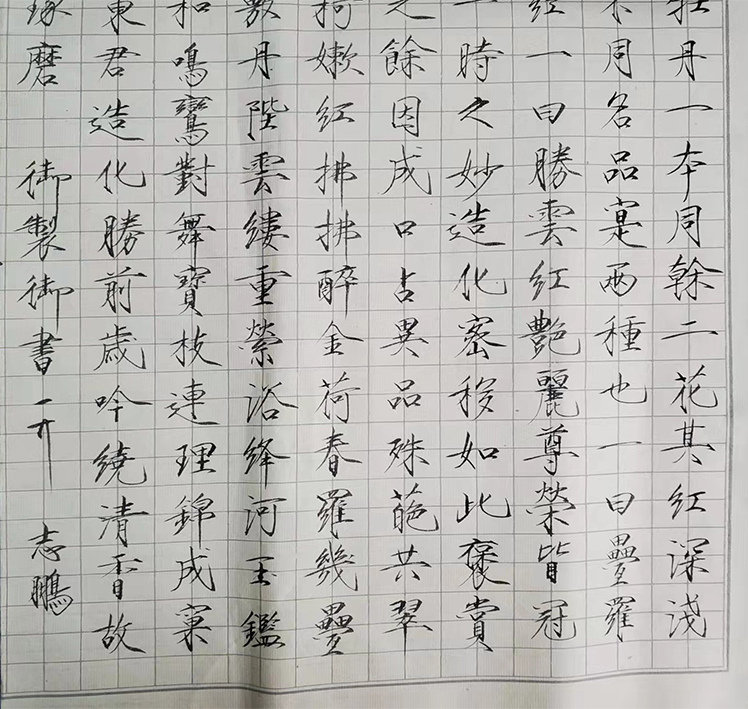 牡丹一本同榦二花其紅深淺
不同名品寔兩種也一曰疊羅
紅一曰勝雲紅艷麗尊榮皆冠
一時之妙造化密移如此褒賞
之餘因成口占異品殊葩共翠
柯嫩紅拂拂醉金荷春羅幾疊
敷丹陛雲縷重縈浴絳河玉鑑
和鳴鸞對舞寶枝連理錦成窠
東君造化勝前歲吟繞清香故
琢磨 御製御書
志鵬